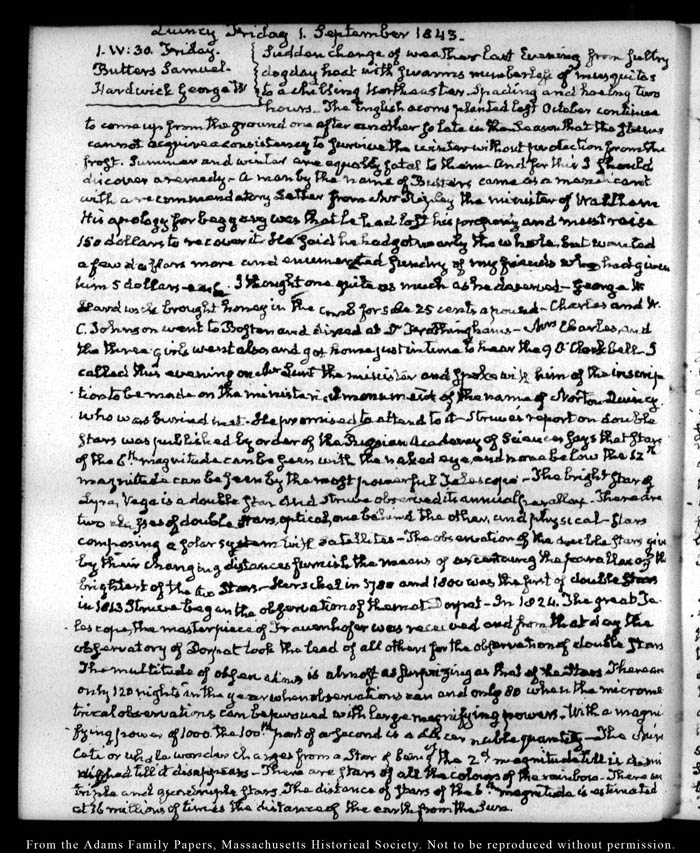 Quincy Friday 1. September 1843.
1. IV:30. Friday.
Butters Samuel
Hardwick George W
Sudden change of weather last Evening from sultry
dogday heat with swarms numberless of musquitos
to a chilling Northeaster. Spading and hoeing two
hours. The English acorns planted last October continue
to come up from the ground one after another so late in the Season that the
cannot acquire a consistency to survive the winter without protection from the
frost. Summer and winter are equally fatal to them. And for this I should
discover a remedy. A man by the name of Butters came as a mendicant
with a recommendatory Letter from Mr Ripley the minister of Waltham
His apology for beggary was that he had lost his property and must raise
150 dollars to recover it. He said he had got nearly the whole, but wanted
a few dollars more and enumerated sundry of my friends who had given
him 5 dollars each. I thought one quite as much as he deserved. George W
Hardwick brought honey in the comb for sale 25 cents a pound. Charles and W.
C. Johnson went to Boston and dined at Dr Frothingham's. Mrs Charles, and
the three girls went also and got home just in time to hear the 9 O'Clock bell. I
called this evening on Mr Lunt the minister and spoke with him of the inscrip
tion to be made on the ministerial monument of the name of Norton Quincy
who was buried . He promised to attend to it. Struve's report on double
stars was published by order of the Russian Academy of Sciences says that Stars
of the 6th magnitude can be seen with the naked eye, and none below the 12th
magnitude can be seen by the most powerful Telescope. The bright star of
Lyra, Vega is a double star and Struve observed its annual parallax. There are
two classes of double Stars, optical, one behind the other, and physical. Stars
composing a solar system with satellites. The observation of the double stars give
by their changing distances furnish the means of ascertaining the parallax of the
brightest of the two Stars. Herschel in 1780 and 1800 was the first of double Stars
in 1813 Struve began the observation of them at Dorpat. In 1824. The great Te
lescope, the masterpiece of Frauenhofer was received and from that day the
observatory of Dorpat took the lead of all others for the observation of double Stars
The multitude of observations is almost as surprizing as that of the Stars. There are
only 120 nights in the year when observations can and only 80 when the microme
trical observations can be pursued with large magnifying powers. With a magni
fying power of 1000. the 100th part of a second is a discernible quantity. The
Ceti or whale wonder changes from a Star of being of the 2d magnitude till it
dissappears. There are stars of all the colours of the rainbow. There are
triple and quadruple stars. The distance of stars of the 6th magnitude is estimated
at 76 millions of times the distance of the earth from the Sun.
From the Adams Family Papers, Massachusetts Historical Society. Not to be reproduced without permission.